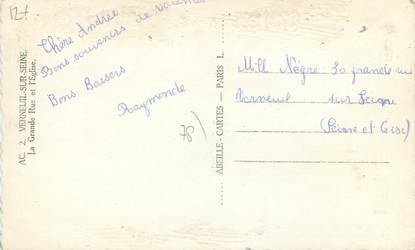 127
AC. 2. VERNEUIL-SUR-SEINE.
La Grande Rue et l'Église.
Chère Andrée
Bons souvenirs de vacances
Bons Baisers
Raymonde
78)
ABEILLE-CARTES — PARIS
Mlle Nègre 30 grande rue
Verneuil sur Seine
(Seine et Oise)